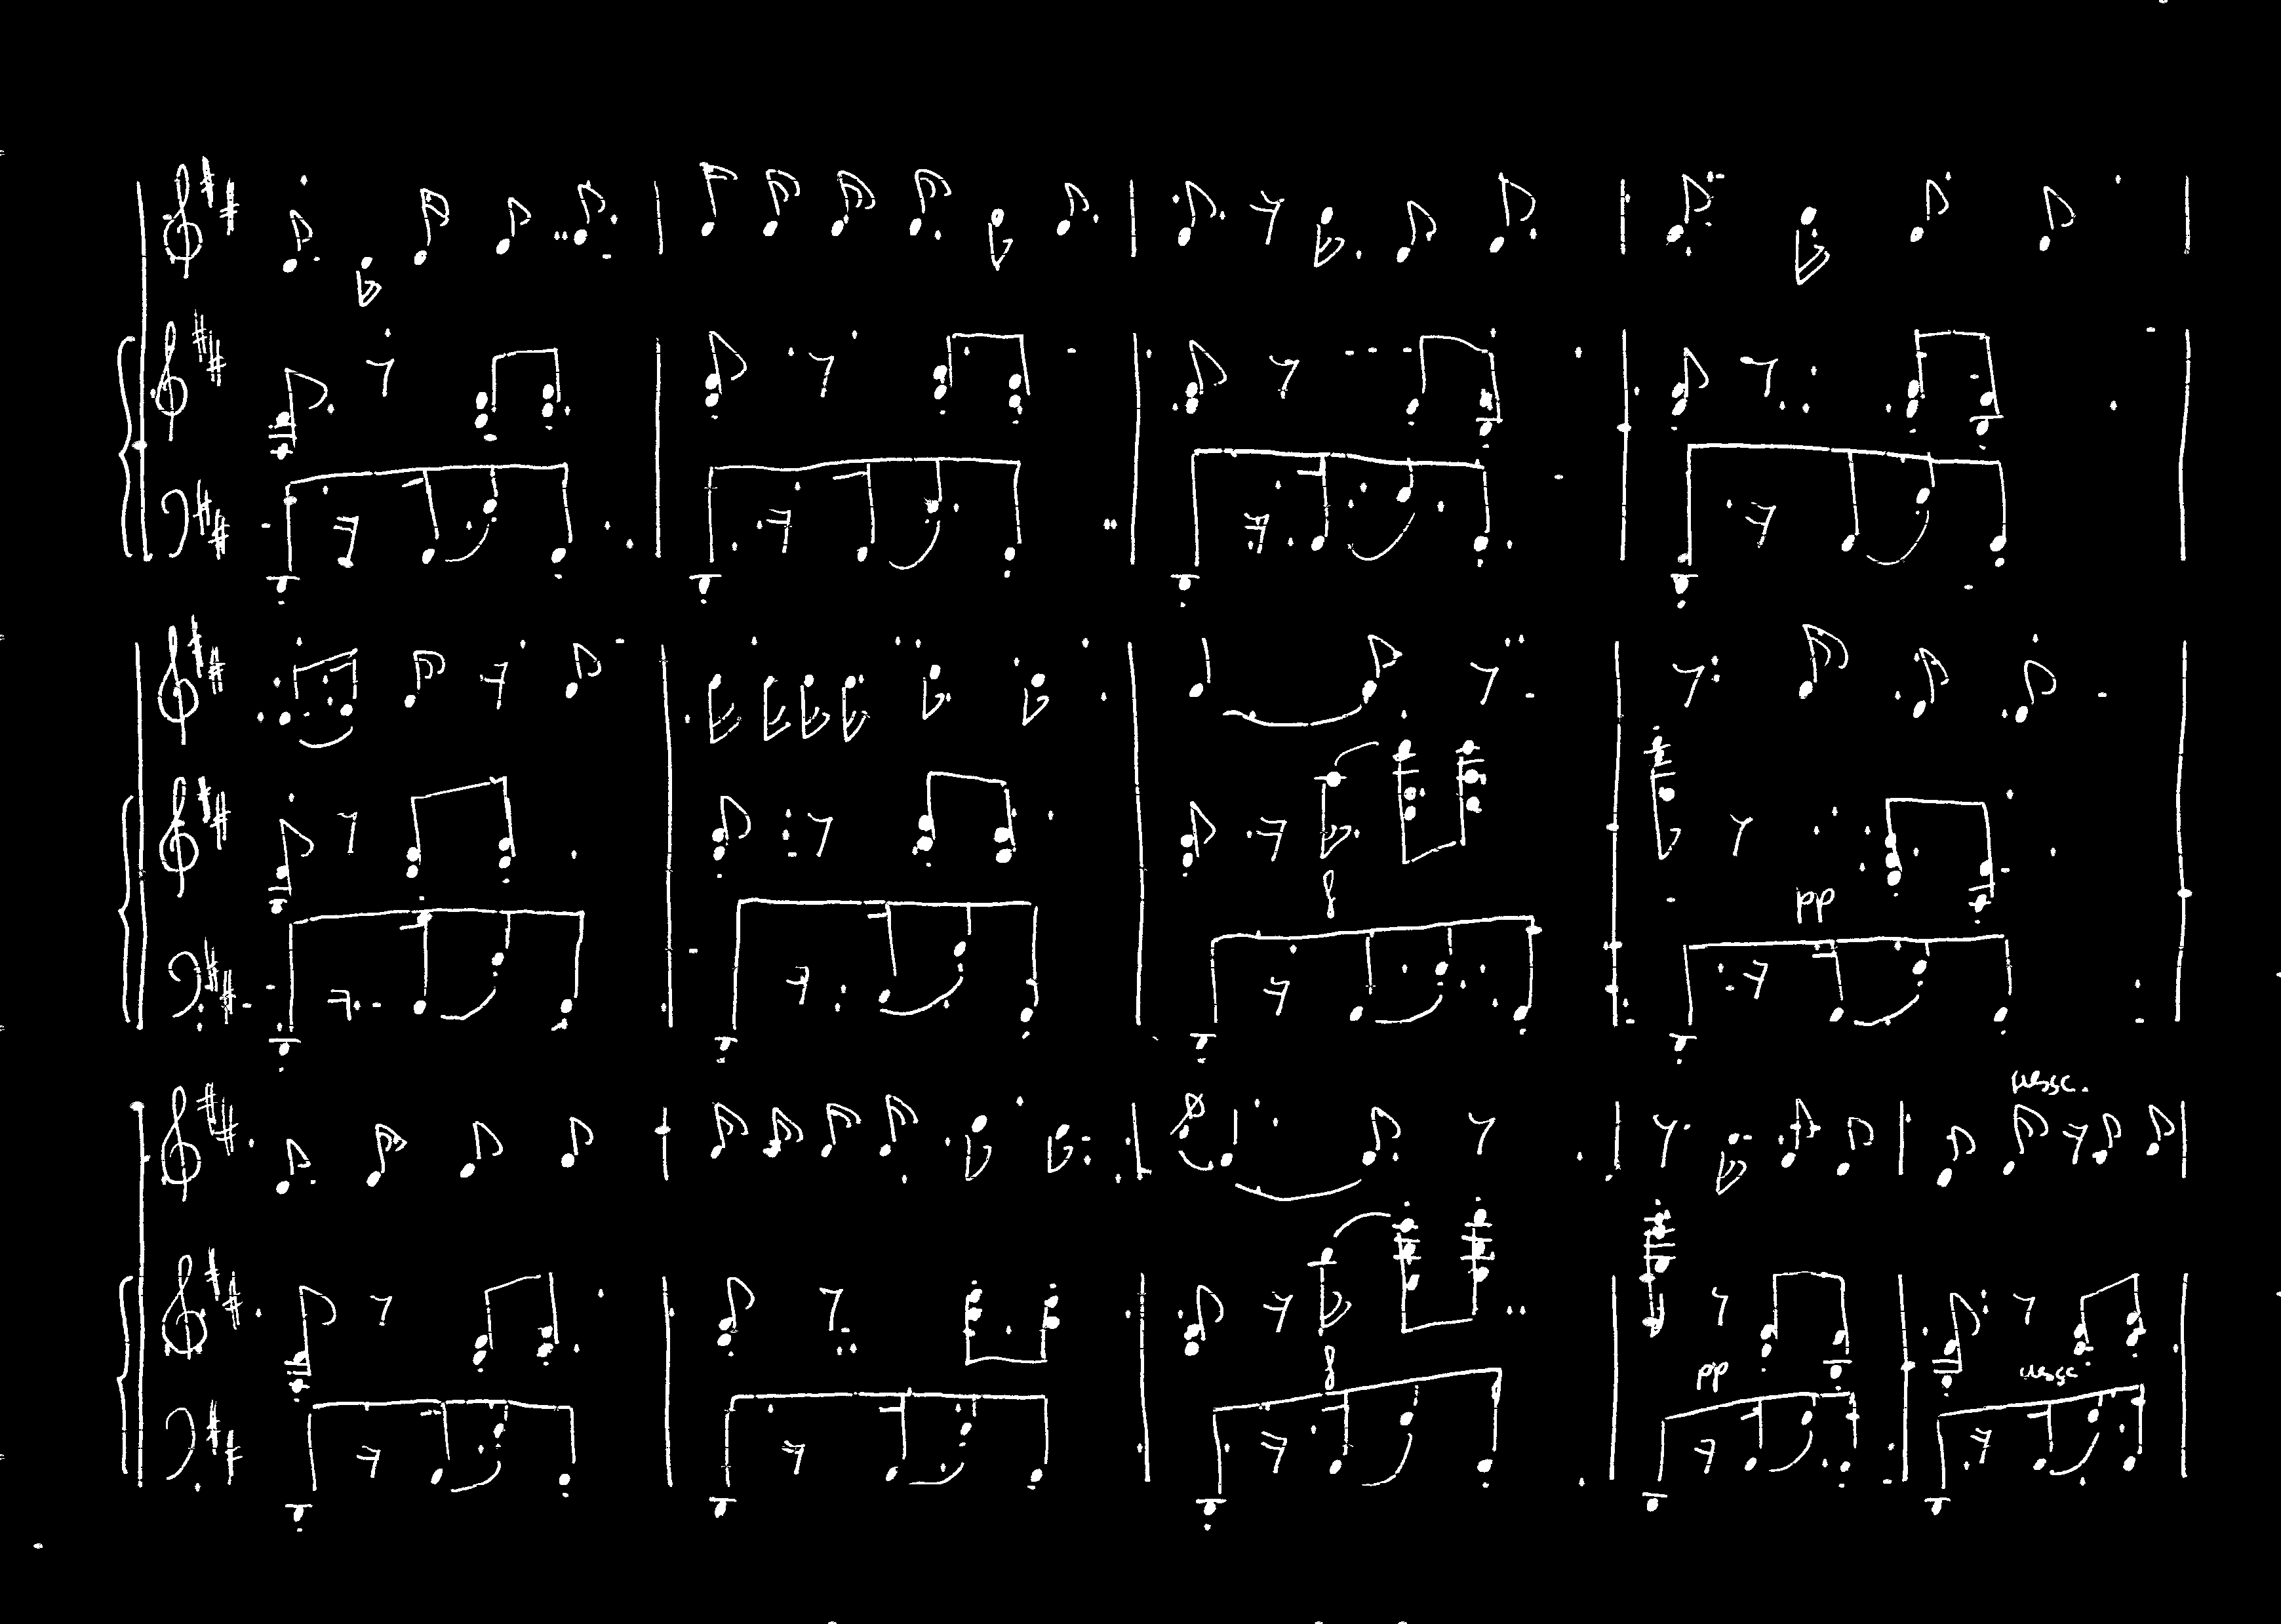 pp
cresc.
f
pp
cresc